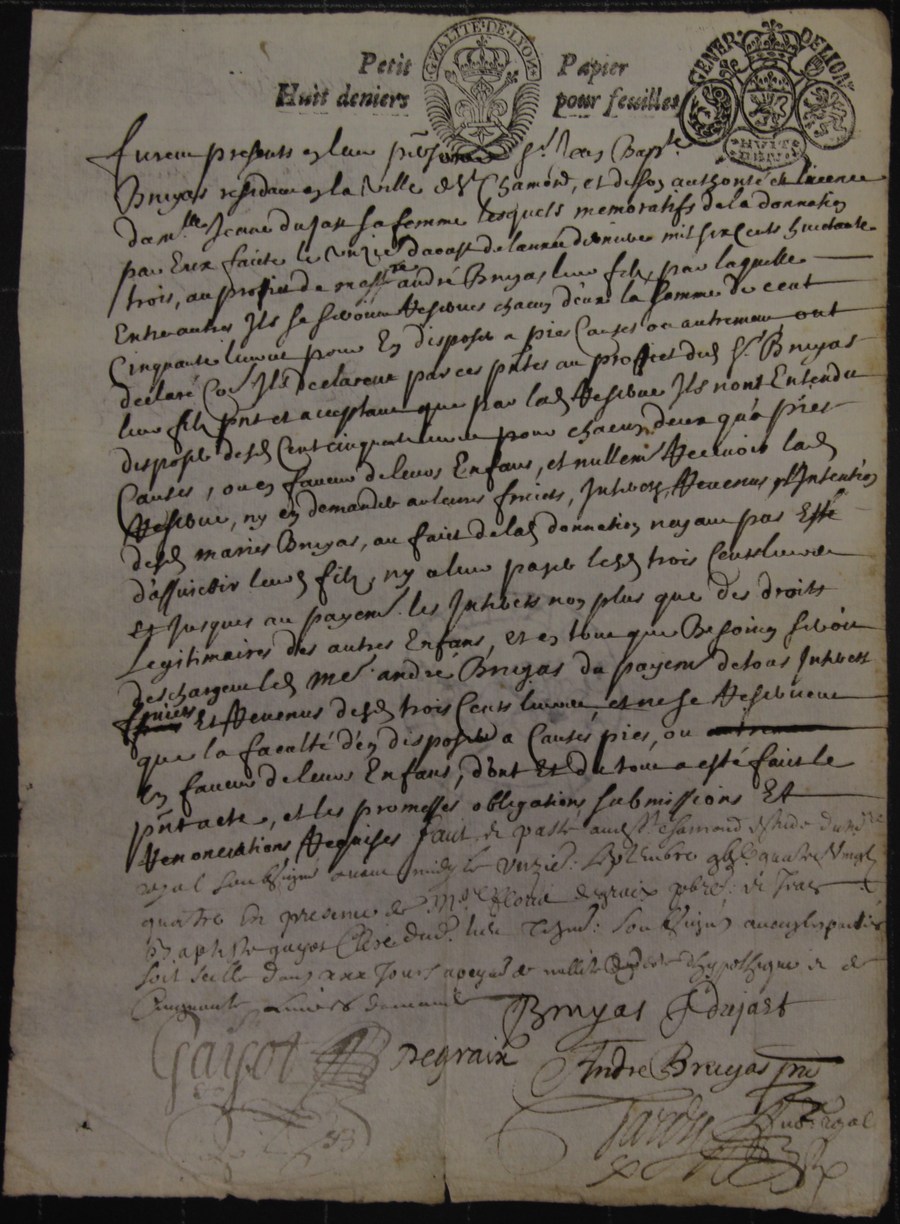 GNALITE·DE·LYON
GENER DE LION
Petit Papier
Huit deniers pour feuilles
HUIT
DEN
furent presents en leur personne Sr Jean Bapte
Bruyas residant en la ville de St Chamond, et de son authorité et licence
dam.lle Jeanne dujast sa femme lesquels memoratifs de la donnation
par Eux faite le unzie daoust de lannée derniere mil six Cents huictante
trois, au profit de messre andré Bruyas leur filz par laquelle
Entre autres Ils se seroient Reservés chacun d'eux la somme de cent
Cinquante livres pour En disposer a pies Causes ou autrement ont
declaré Coe Ils declarent par ces pntes au proffict dud Sr Bruyas
leur filz pnt et acceptant que par lad Reserve Ils nont Entendu
disposer desd Cent cinquante livres pour chacun deux qu'a pies
Causes, ou en faveur de leurs Enfans, et nullemt Recevoir lad
Reserve, ny en demander aulcuns fruicts, Interests, Revenus, Intention
desd mariés Bruyas, au fait de lad donnation nayant pas Esté
d'assuiectir leurd filz, ny a leur payer lesd trois Cents livres
Et jusques au payemt les Interets non plus que des droits
Legitimaires des autres Enfans, et en tout que Besoing seroit
deschargent led Mre andré Bruyas du payemt de tous Interets
fruicts Et Revenus desd trois Cents livres, et ne se Reservent
que la faculté d'en disposer a Causes pies, ou
En faveur de leurs Enfans, dont Et du tout a esté fait le
pnt acte, et les promesses obligations submissions Et
Renonciations Requises fait et passé aud St Chamond estude du nore
royal soubsigné avant midy le unzie: septembre gbic quatre vingt
quatre En presence de Mre degraix et Jean
Baptiste gayot Clerc dud. lieu soubsignés avec les parties
soit scellé dans xxx Jours a peyne de nullité dhypotheque et de
Cinquante livres damande
Bruyas J dujast
Gayot Degraix
Andre Bruyas pre
Tardy not Royal